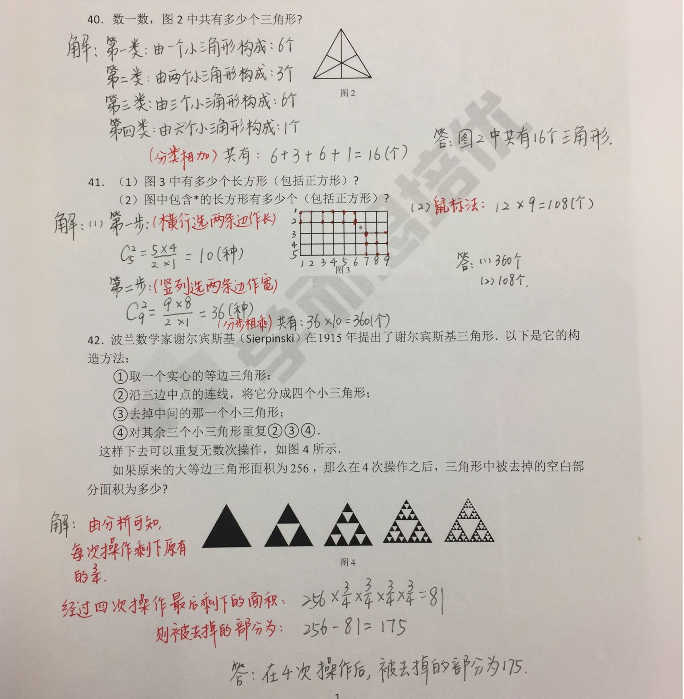 40. 数一数，图 2 中共有多少个三角形?
解: 第一类: 由一个小三角形构成: 6个
第二类: 由两个小三角形构成: 3个
第三类: 由三个小三角形构成: 6个
第四类: 由六个小三角形构成: 1个
图 2
(分类相加) 共有: 6+3+6+1=16(个)
答: 图2中共有16个三角形.
41. （1）图 3 中有多少个长方形（包括正方形）?
（2）图中包含*的长方形有多少个（包括正方形）?
解: (1) 第一步: (横行选两条边作长)
C₅²=5×4/2×1=10(种)
第二步: (竖列选两条边作宽)
C₉²=9×8/2×1=36(种)
(分步相乘) 共有: 36×10=360(个)
1
2
3
4
5
1 2 3 4 5 6 7 8 9
图 3
(2) 鼠标法: 12×9=108(个)
答: (1) 360个
(2) 108个.
42. 波兰数学家谢尔宾斯基（Sierpinski）在1915 年提出了谢尔宾斯基三角形．以下是它的构
造方法:
①取一个实心的等边三角形;
②沿三边中点的连线，将它分成四个小三角形;
③去掉中间的那一个小三角形;
④对其余三个小三角形重复②③④.
这样下去可以重复无数次操作，如图 4 所示.
如果原来的大等边三角形面积为 256，那么在 4 次操作之后，三角形中被去掉的空白部
分面积为多少?
图 4
解: 由分析可知,
每次操作剩下原有
的3/4.
经过四次操作最后剩下的面积: 256×3/4×3/4×3/4×3/4=81
则被去掉的部分为: 256-81=175
答: 在4次操作后, 被去掉的部分为175.
学而思培优